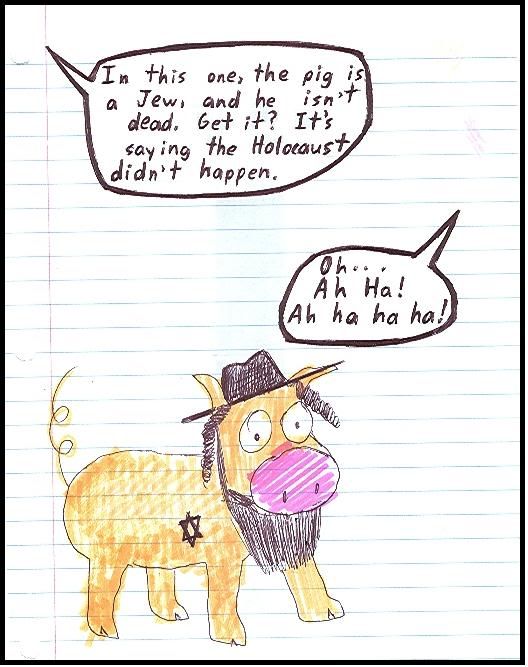 In this one, the pig is
a Jew, and he isn't
dead. Get it? It's
saying the Holocaust
didn't happen.
Oh...
Ah Ha!
Ah ha ha ha!